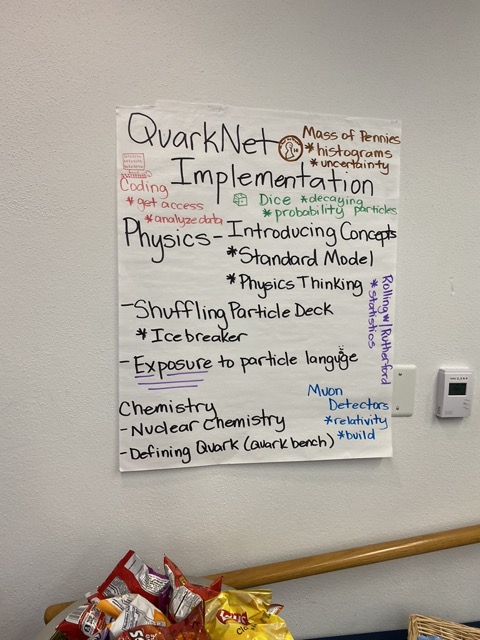 QuarkNet
Implementation
Mass of Pennies
* histograms
* uncertainty
Coding
* get access
* analyze data
Dice * decaying
* probability particles
Physics - Introducing Concepts
* Standard Model
* Physics Thinking
- Shuffling Particle Deck
* Icebreaker
- Exposure to particle languge
Rolling w/ Rutherford
* statistics
Chemistry
- Nuclear Chemistry
- Defining Quark (quark bench)
Muon
Detectors
* relativity
* build